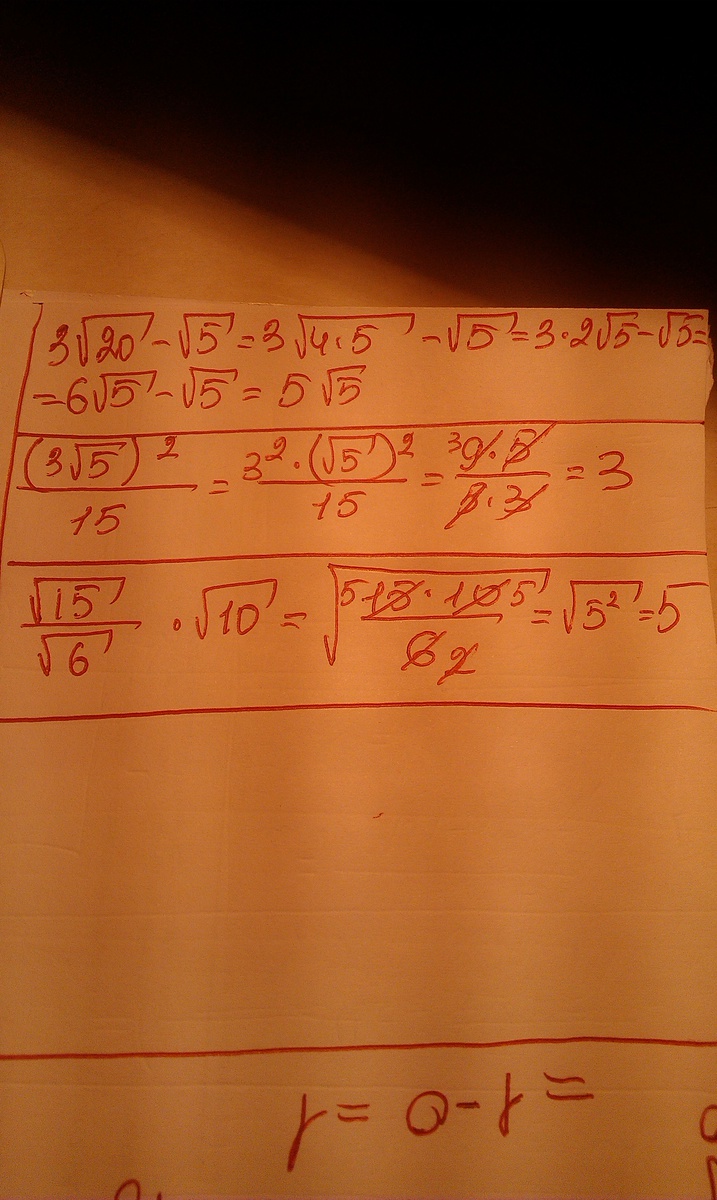 3√20 - √5 = 3√4·5 - √5 = 3·2√5 - √5 =
= 6√5 - √5 = 5√5
(3√5)²/15 = 3²·(√5)²/15 = ³9·5/5·3 = 3
√15/√6 · √10 = √(5 15·10 5/6 2) = √5² = 5
= 1 - 0 = 1